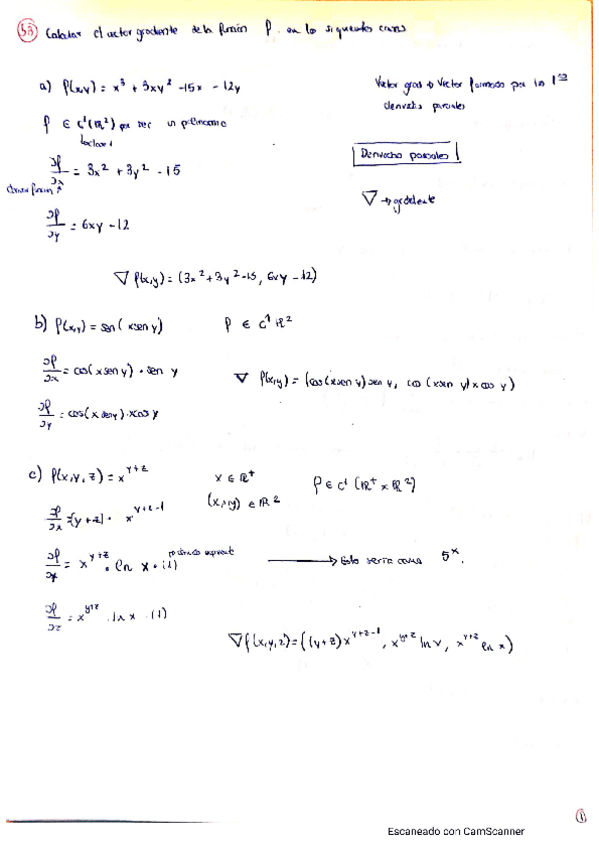 Calcular el vector gradiente de la función f en los siguientes casos
a) f(x,y) = x³ + 3xy² - 15x - 12y
Vector grad → Vector formado por las 1ªˢ derivadas parciales
f ∈ C¹(ℝ²) por ser un polinomio
∂f/∂x = 3x² + 3y² - 15
Derivadas parciales
∇ → gradiente
∂f/∂y = 6xy - 12
∇ f(x,y) = (3x² + 3y² - 15, 6xy - 12)
b) f(x,y) = sen( x sen y) f ∈ C¹ ℝ²
∂f/∂x = cos( x sen y) · sen y
∇ f(x,y) = (cos(x sen y) sen y, cos (x sen y) x cos y)
∂f/∂y = cos( x sen y) · x cos y
c) f(x,y,z) = x^(y+z) x ∈ ℝ⁺ f ∈ C¹ (ℝ⁺ x ℝ²)
∈ ℝ²
∂f/∂x = (y+z) · x^(y+z-1)
∂f/∂y = x^(y+z) · ln x · (1) → Esto seria como 5ˣ.
∂f/∂z = x^(y+z) · ln x · (1)
∇f(x,y,z) = ((y+z) x^(y+z-1), x^(y+z) ln x, x^(y+z) ln x)
1
Escaneado con CamScanner